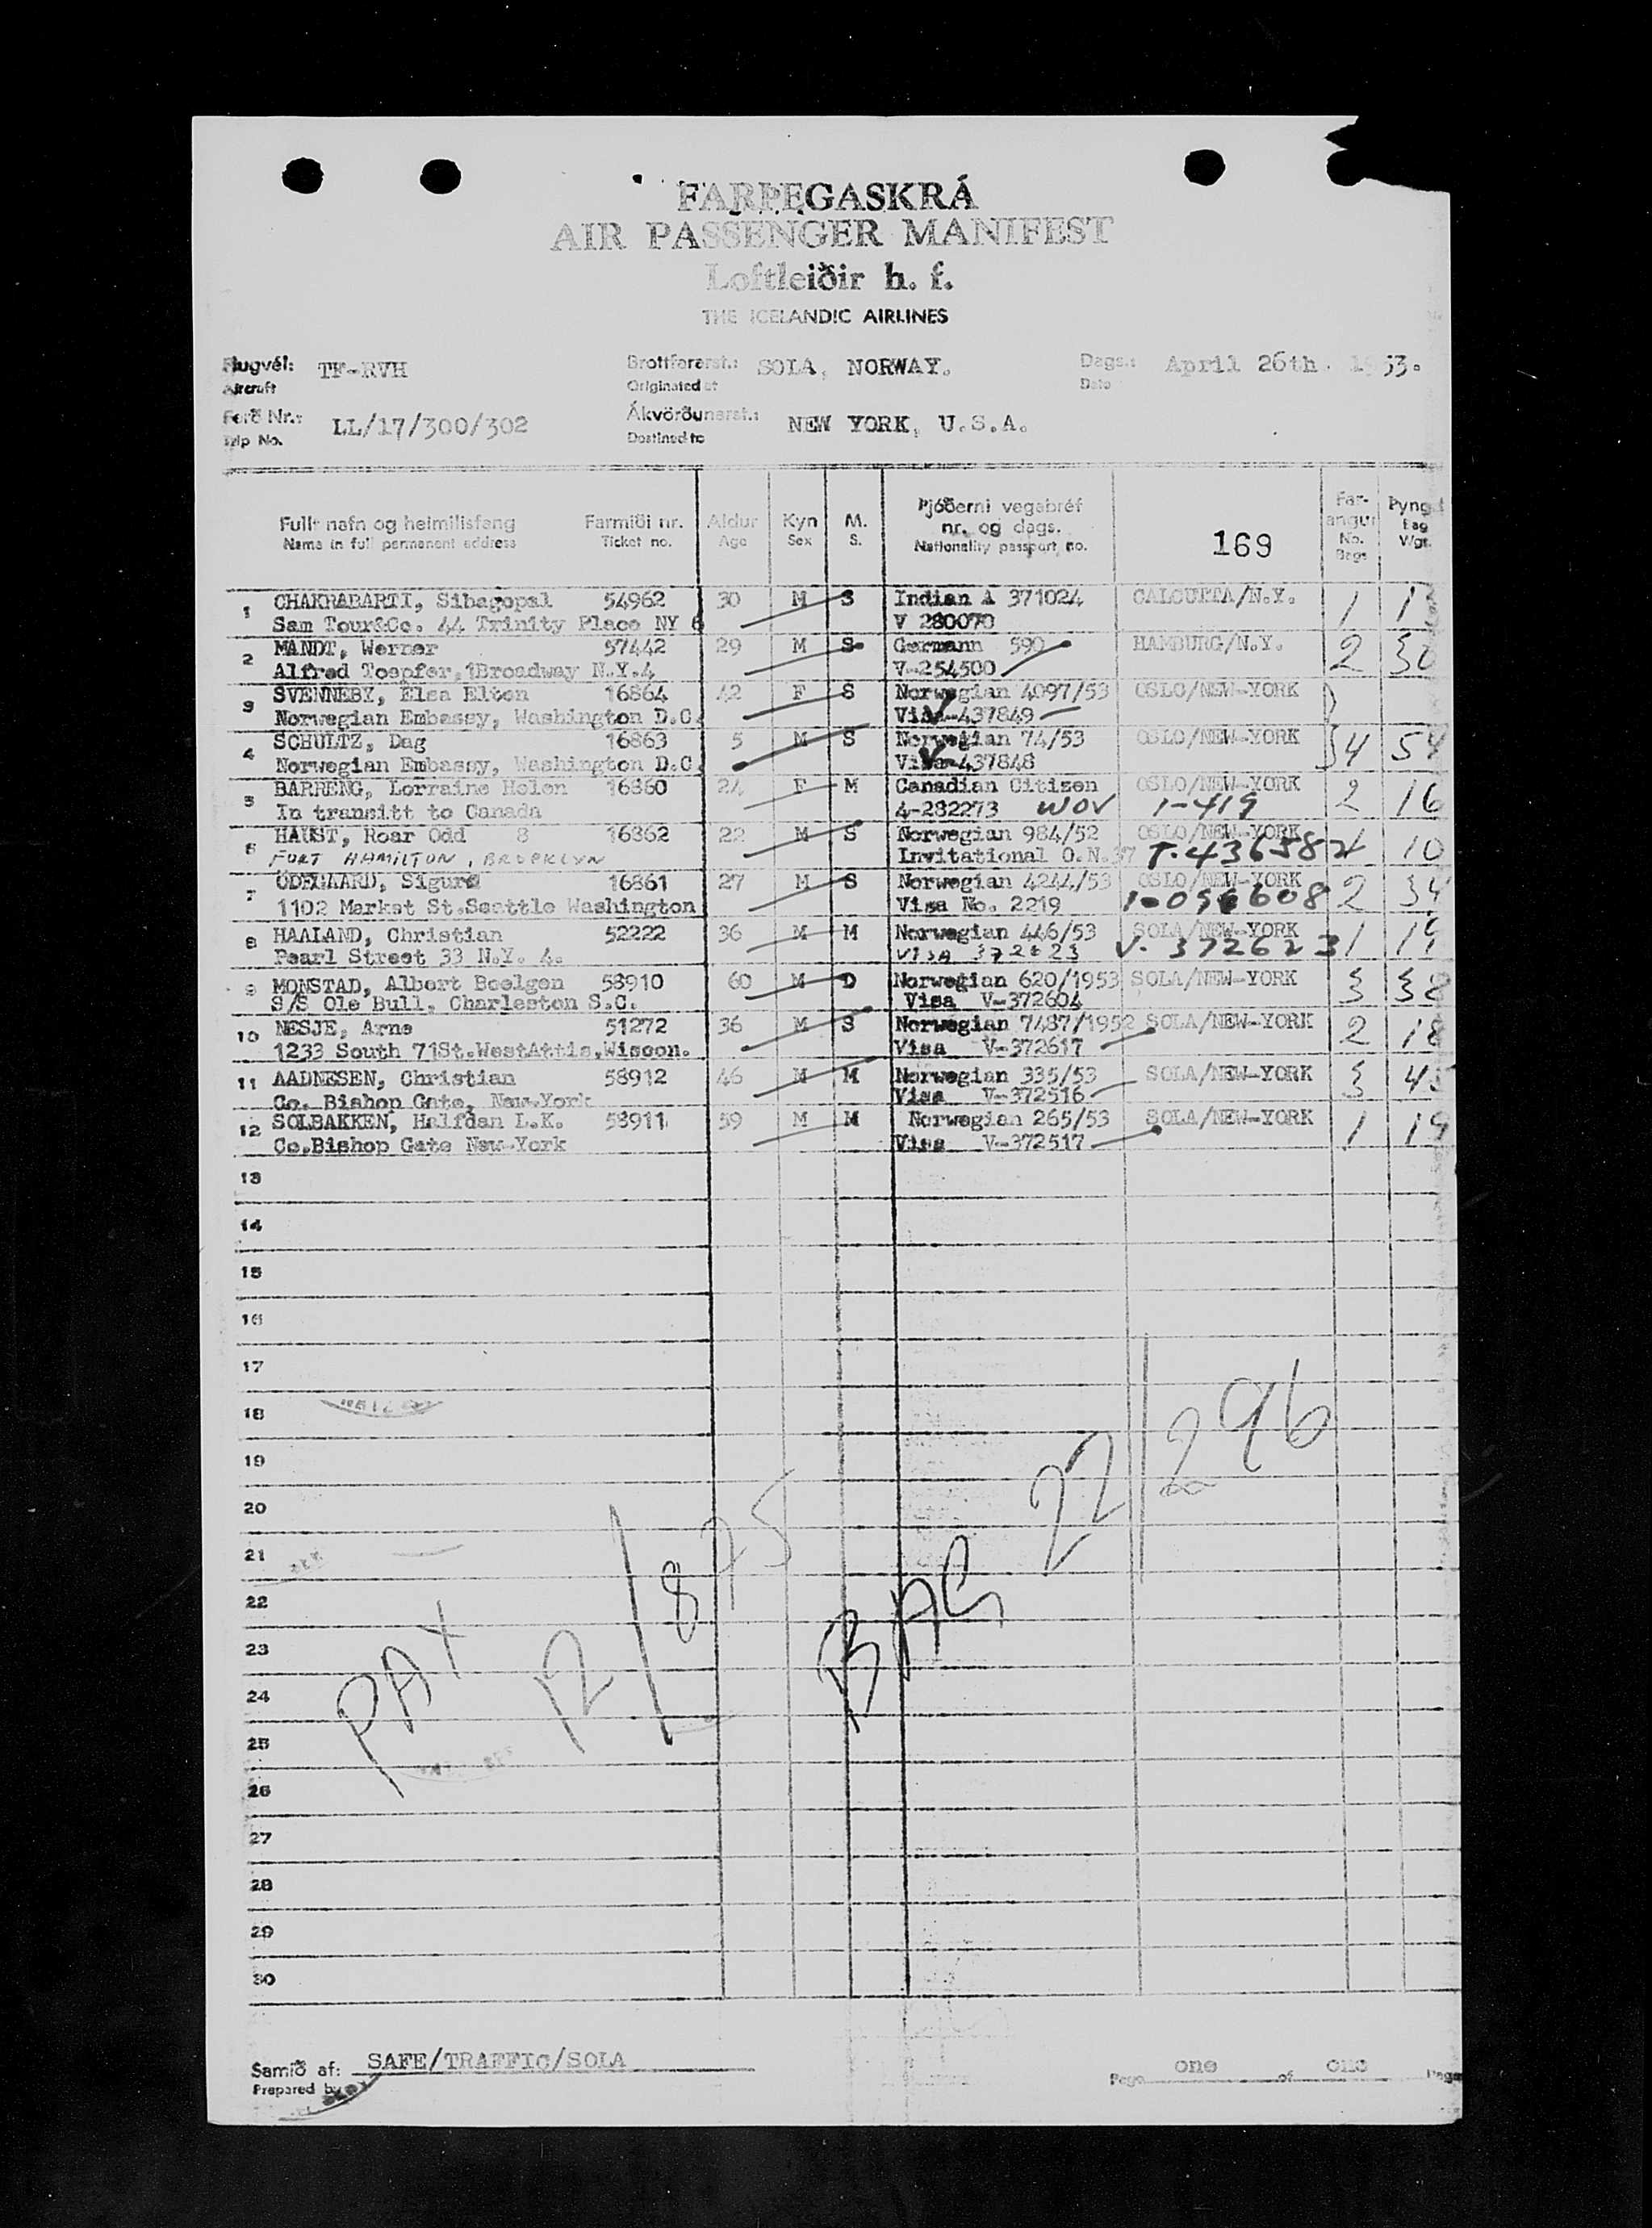 FARÞEGASKRÁ
AIR PASSENGER MANIFEST
Loftleiðir h. f.
THE ICELANDIC AIRLINES
Flugvél: TF-RVH Brottfararst.: SOLA, NORWAY. Dags.: April 26th. 1953.
Aircraft Originated at Date
Ferð Nr.: LL/17/300/302 Ákvörðunarst.: NEW YORK, U.S.A.
Trip No. Destined to
Fullt nafn og heimilisfang Farmiði nr. Aldur Kyn M. Þjóðerni vegabréf nr. og dags. 169 Far-angur Þyngd
Name in full permanent address Ticket no. Age Sex S. Nationality passport no. No. Bags Bag Wgt.
1 CHAKRABARTI, Sibagopal 54962 30 M S Indian A 371024 CALCUTTA/N.Y. 1
Sam Tour&Co. 44 Trinity Place NY 6 V 280070
2 MANDT, Werner 57442 29 M S Germann 590 HAMBURG/N.Y. 2 30
Alfred Toepfer,1Broadway N.Y.4 V-254500
3 SVENNEBY, Elsa Elton 16864 42 F S Norwegian 4097/53 OSLO/NEW-YORK
Norwegian Embassy, Washington D.C. Visa-437849
4 SCHULTZ, Dag 16863 5 M S Norwegian 74/53 OSLO/NEW-YORK 4 54
Norwegian Embassy, Washington D.C. Visa-437848
5 BARRENG, Lorraine Helen 16860 24 F M Canadian Citizen OSLO/NEW-YORK 2 16
In transitt to Canada 4-282273 WOV 1-419
6 HAUST, Roar Odd 8 16862 22 M S Norwegian 984/52 OSLO/NEW-YORK 10
FORT HAMILTON, BROOKLYN Invitational O.N.37 T.436582
7 ODEGAARD, Sigurd 16861 27 M S Norwegian 4244/53 OSLO/NEW-YORK 2 34
1102 Market St.Seattle Washington Visa No. 2219 1-056608
8 HAALAND, Christian 52222 36 M M Norwegian 446/53 SOLA/NEW-YORK 1 19
Pearl Street 33 N.Y. 4. VISA 372623 V. 372623
9 MONSTAD, Albert Boelgen 58910 60 M D Norwegian 620/1953 SOLA/NEW-YORK 3 38
S/S Ole Bull, Charleston S.C. Visa V-372604
10 NESJE, Arne 51272 36 M S Norwegian 7487/1952 SOLA/NEW-YORK 2 18
1233 South 71St.WestAttis,Wiscon. Visa V-372617
11 AADNESEN, Christian 58912 46 M M Norwegian 335/53 SOLA/NEW-YORK 3 45
Co. Bishop Gate, New-York Visa V-372516
12 SOLBAKKEN, Halfdan L.K. 58911 59 M M Norwegian 265/53 SOLA/NEW-YORK 1 19
Co.Bishop Gate New-York Visa V-372517
13
14
15
16
17
18
19
20
21
22
23
24
25
26
27
28
29
30
PAX 12/895 BAG 22/296
Samið af: SAFE/TRAFFIC/SOLA
Prepared by
Page one of one Pages